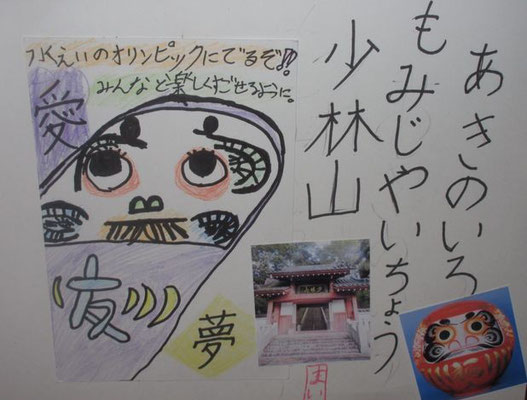 水えいのオリンピックにでるぞ!!
みんなと楽しくすごせるように。
愛
友
夢
あきのいろ
もみじやいちょう
少林山